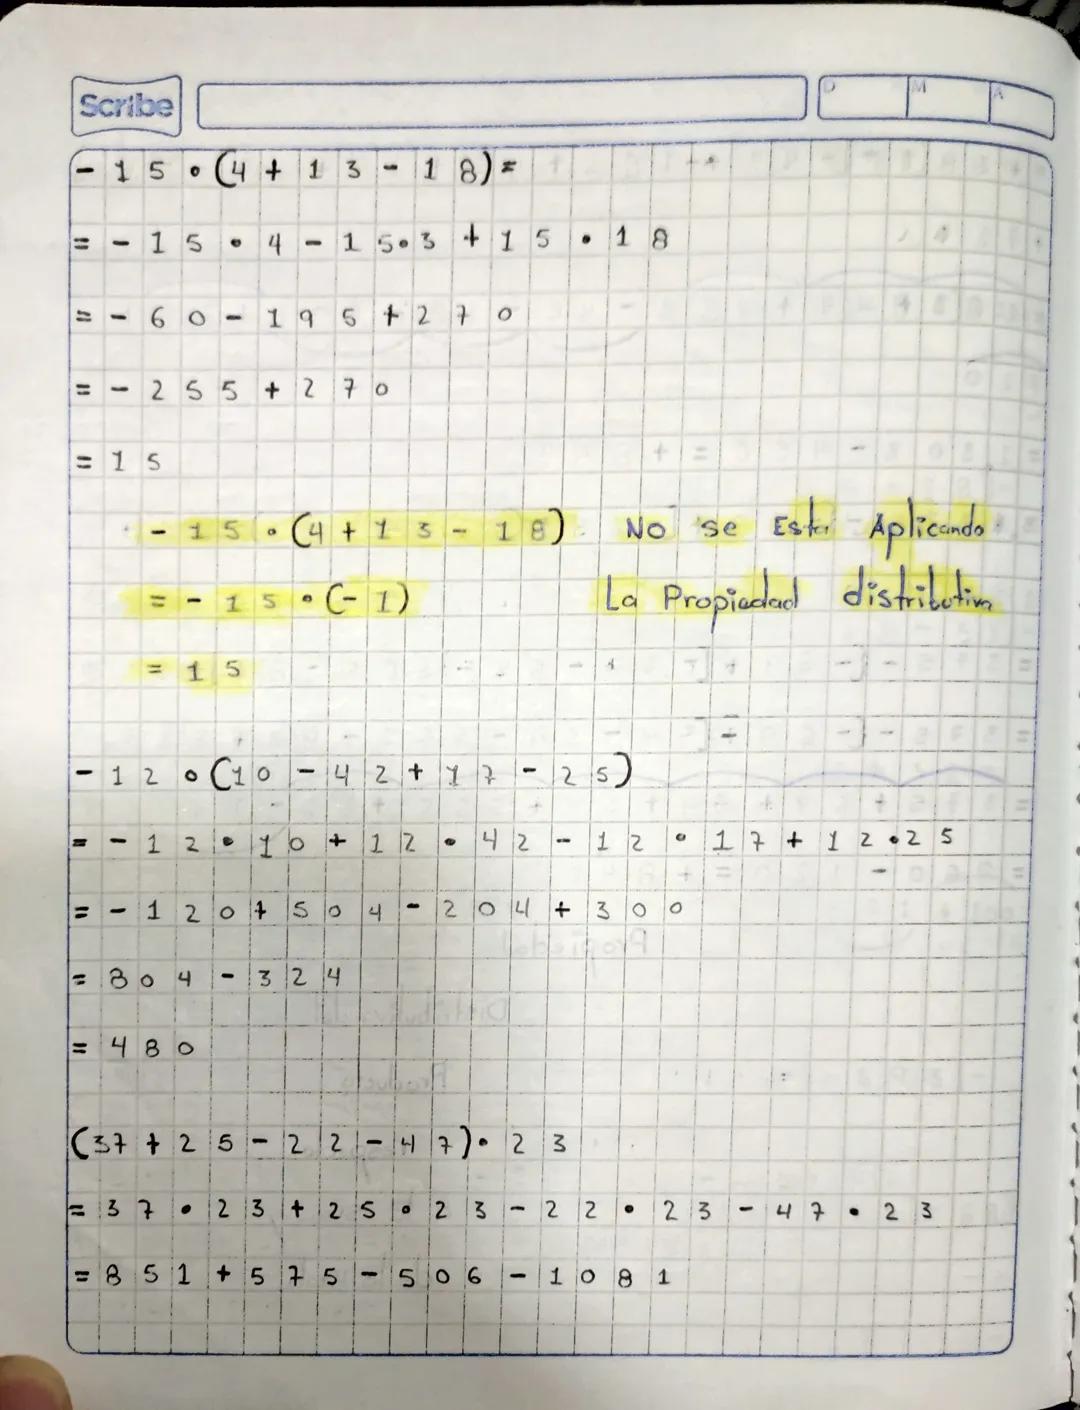 Scribe
D M A
-15•(4+13-18)=
=-15•4-15•3+15•18
=-60-195+270
=-255+270
=15
-15•(4+13-18) No se Esta Aplicando
=-15•(-1) La Propiedad distributiva
=15
-12•(10-42+17-25)
=-12•10+12•42-12•17+12•25
=-120+504-204+300
=804-324
=480
(37+25-22-47)•23
=37•23+25•23-22•23-47•23
=851+575-506-1081